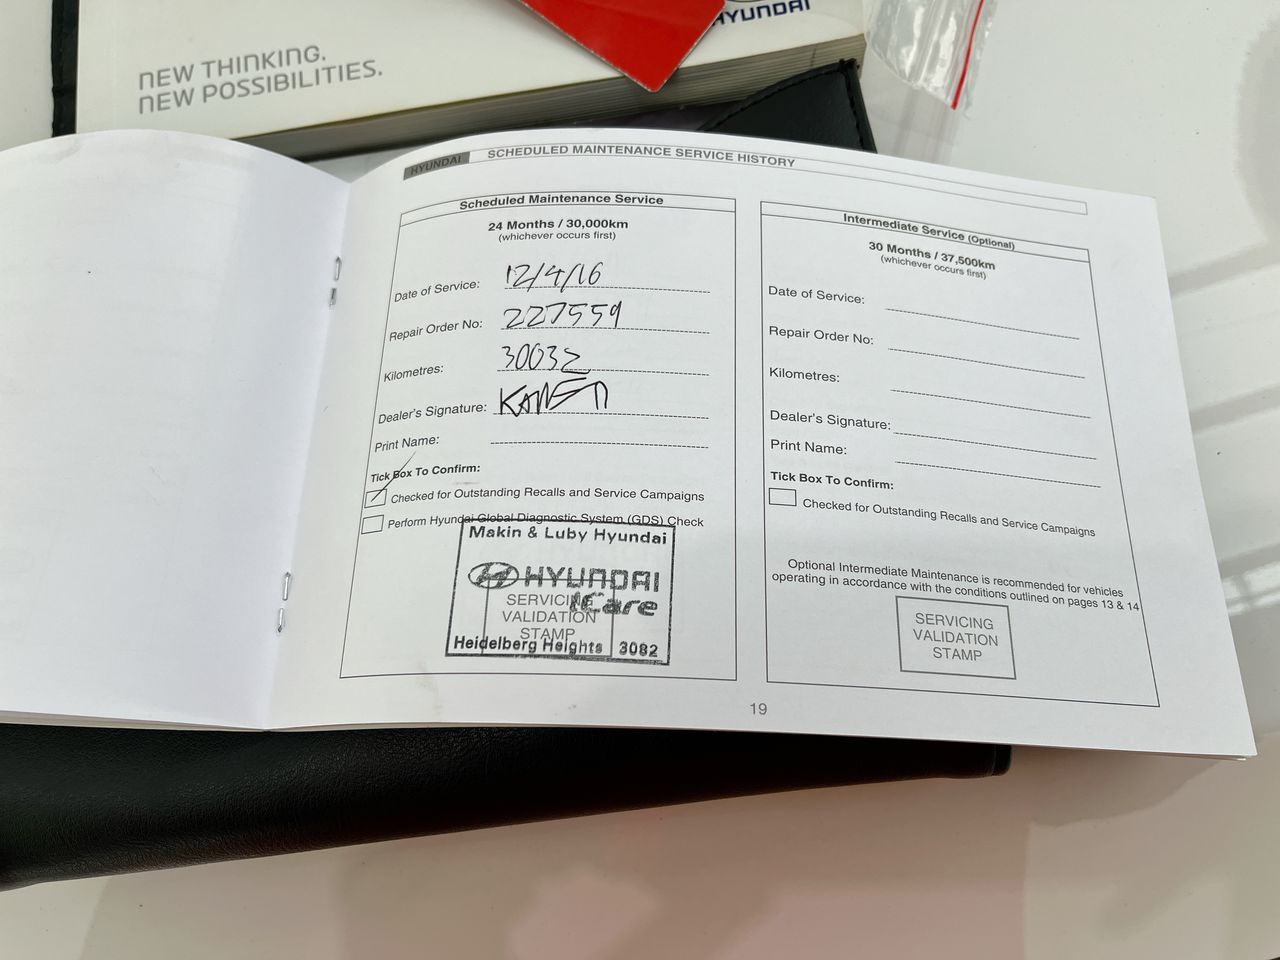 HYUNDAI
NEW THINKING.
NEW POSSIBILITIES.
HYUNDAI SCHEDULED MAINTENANCE SERVICE HISTORY
Scheduled Maintenance Service
24 Months / 30,000km
(whichever occurs first)
Date of Service: 12/4/16
Repair Order No: 227559
Kilometres: 30032
Dealer's Signature:
Print Name:
Tick Box To Confirm:
Checked for Outstanding Recalls and Service Campaigns
Perform Hyundai Global Diagnostic System (GDS) Check
Makin & Luby Hyundai
HYUNDAI
iCare
SERVICING
VALIDATION
STAMP
Heidelberg Heights 3082
Intermediate Service (Optional)
30 Months / 37,500km
(whichever occurs first)
Date of Service:
Repair Order No:
Kilometres:
Dealer's Signature:
Print Name:
Tick Box To Confirm:
Checked for Outstanding Recalls and Service Campaigns
Optional Intermediate Maintenance is recommended for vehicles
operating in accordance with the conditions outlined on pages 13 & 14
SERVICING
VALIDATION
STAMP
19